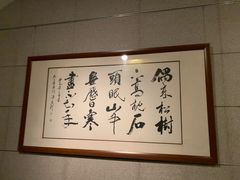 偶來松樹
下高枕石
頭眠山中
無曆日寒
盡不知年